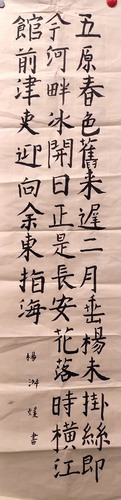 五原春色舊来遲二月垂楊未掛絲即
今河畔冰開日正是長安花落時橫江
館前津吏迎向余東指海
楊 書